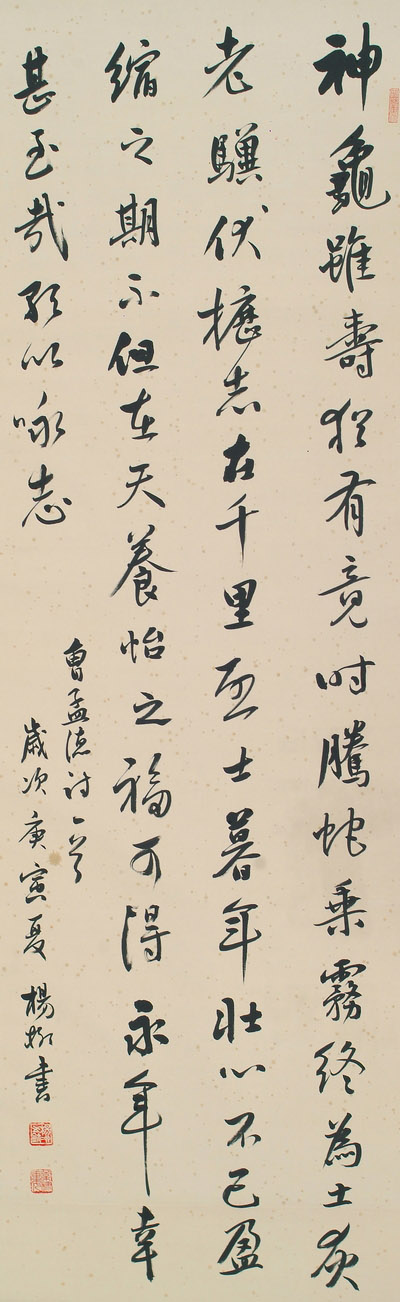 神龜雖壽猶有竟時騰蛇乘霧終為土灰
老驥伏櫪志在千里烈士暮年壯心不已盈
縮之期不但在天養怡之福可得永年幸
甚至哉歌以咏志
曹孟德詩一首
歲次庚寅夏 楊書